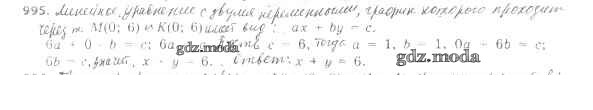 995. Линейное уравнение с двумя переменными, график которого проходит
через т. M(0; 6) и K(0; 6) имеет вид: ax + by = c.
6a + 0 · b = c; 6a gdz.moda c = 6, тогда a = 1, b = 1, 0a - 6b = c;
6b = c, значит, x · y = 6. Ответ: x + y = 6.
gdz.moda